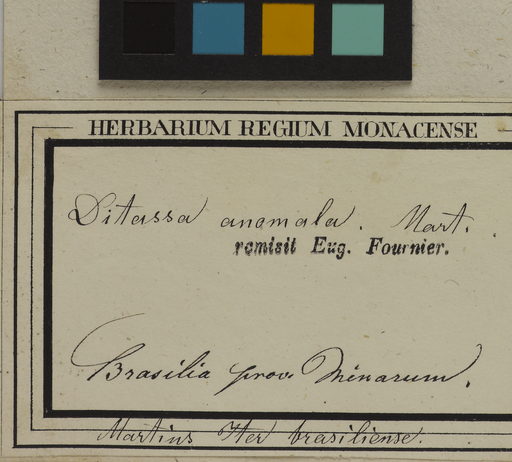 HERBARIUM REGIUM MONACENSE
Ditassa anomala. Mart.
remisit Eug. Fournier.
Brasilia prov. Minarum.
Martius Iter brasiliense.